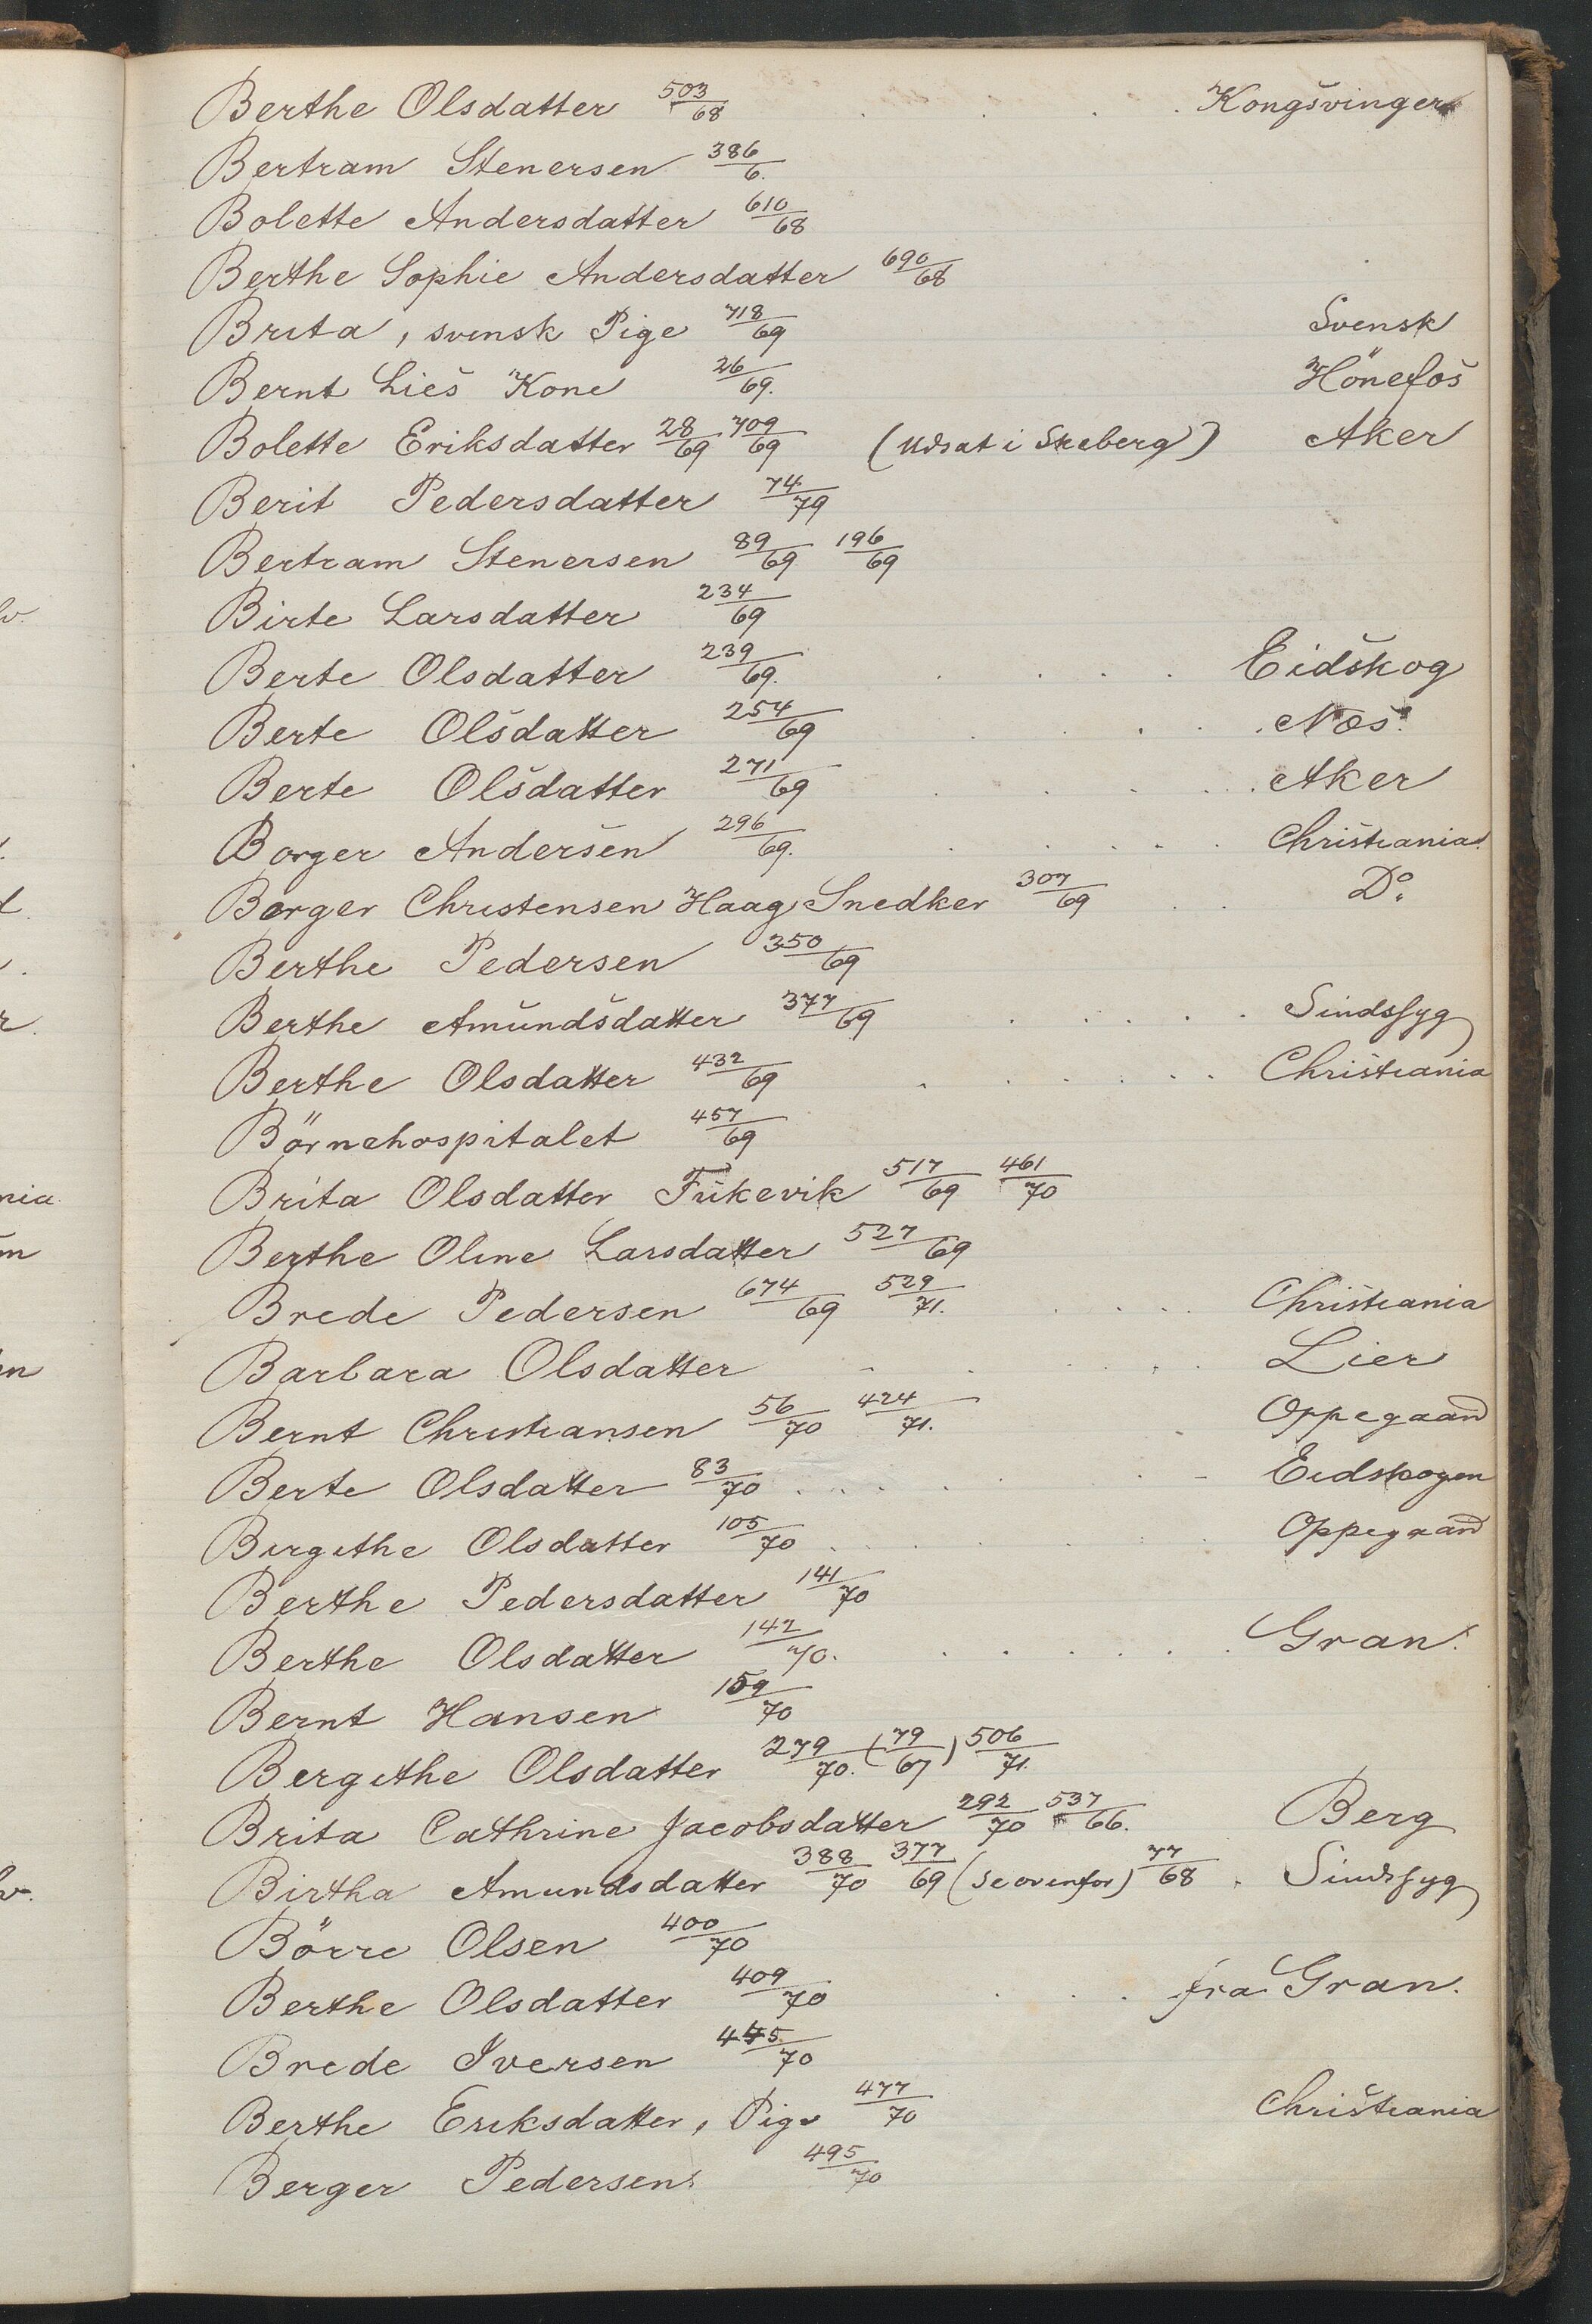 Berthe Olsdatter 503/68 . . . . Kongsvinger
Bertram Stenersen 386/6.
Bolette Andersdatter 610/68
Berthe Sophie Andersdatter 690/68
Brita, svensk Pige 718/69 Svensk
Bernt Lies Kone 26/69. Hönefos
Bolette Eriksdatter 28/69 709/69 (Udsat i Skeberg) Aker
Berit Pedersdatter 74/79
Bertram Stenersen 89/69 196/69
Birte Larsdatter 234/69
Berte Olsdatter 239/69. . . . . Eidskog
Berte Olsdatter 254/69 . . . . Næs.
Berte Olsdatter 271/69 . . . . Aker
Borger Andersen 296/69. . . . . Christiania
Borger Christensen Haag Snedker 307/69 . . Do.
Berthe Pedersen 350/69
Berthe Amundsdatter 377/69 . . . . . Sindssyg
Berthe Olsdatter 432/69 . . . . . Christiania
Börnehospitalet 457/69
Brita Olsdatter Fukevik 517/69 461/70
Berthe Oline Larsdatter 527/69
Brede Pedersen 674/69 529/71. . . . . Christiania
Barbara Olsdatter . . . . . Lier
Bernt Christiansen 56/70 424/71. Oppegaard
Berte Olsdatter 83/70 . . . . . . Eidskogen
Birgithe Olsdatter 105/70 . . . . . Oppegaard
Berthe Pedersdatter 141/70
Berthe Olsdatter 142/70. . . . . . . Gran.
Bernt Hansen 159/70
Bergithe Olsdatter 279/70. (79/67) 506/71.
Brita Cathrine Jacobsdatter 292/70 537/66. Berg
Birtha Amundsdatter 388/70 377/69 (se ovenfor) 77/68 . Sindssyg
Börre Olsen 400/70
Berthe Olsdatter 409/70 . . . fra Gran.
Brede Iversen 445/70
Berthe Eriksdatter, Pige 477/70 Christiania
Berger Pedersen 495/70